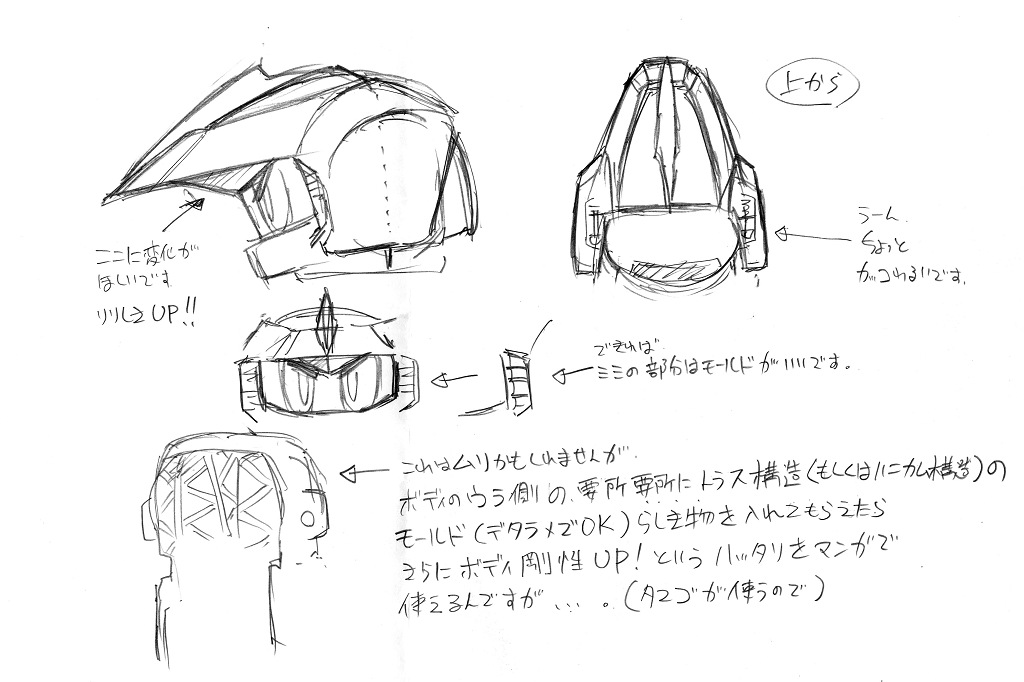 上から
ここに変化が
ほしいです
りりしさUP!!
うーん、
ちょっと
カッコわるいです。
できれば、
ミミの部分はモールドがいいです。
これはムリかもしれませんが、
ボディのウラ側の、要所要所にトラス構造(もしくはハニカム構造)の
モールド(デタラメでOK)らしき物を入れてもらえたら
さらにボディ剛性UP!というハッタリをマンガで
使えるんですが、、、。(タマゴが使うので)